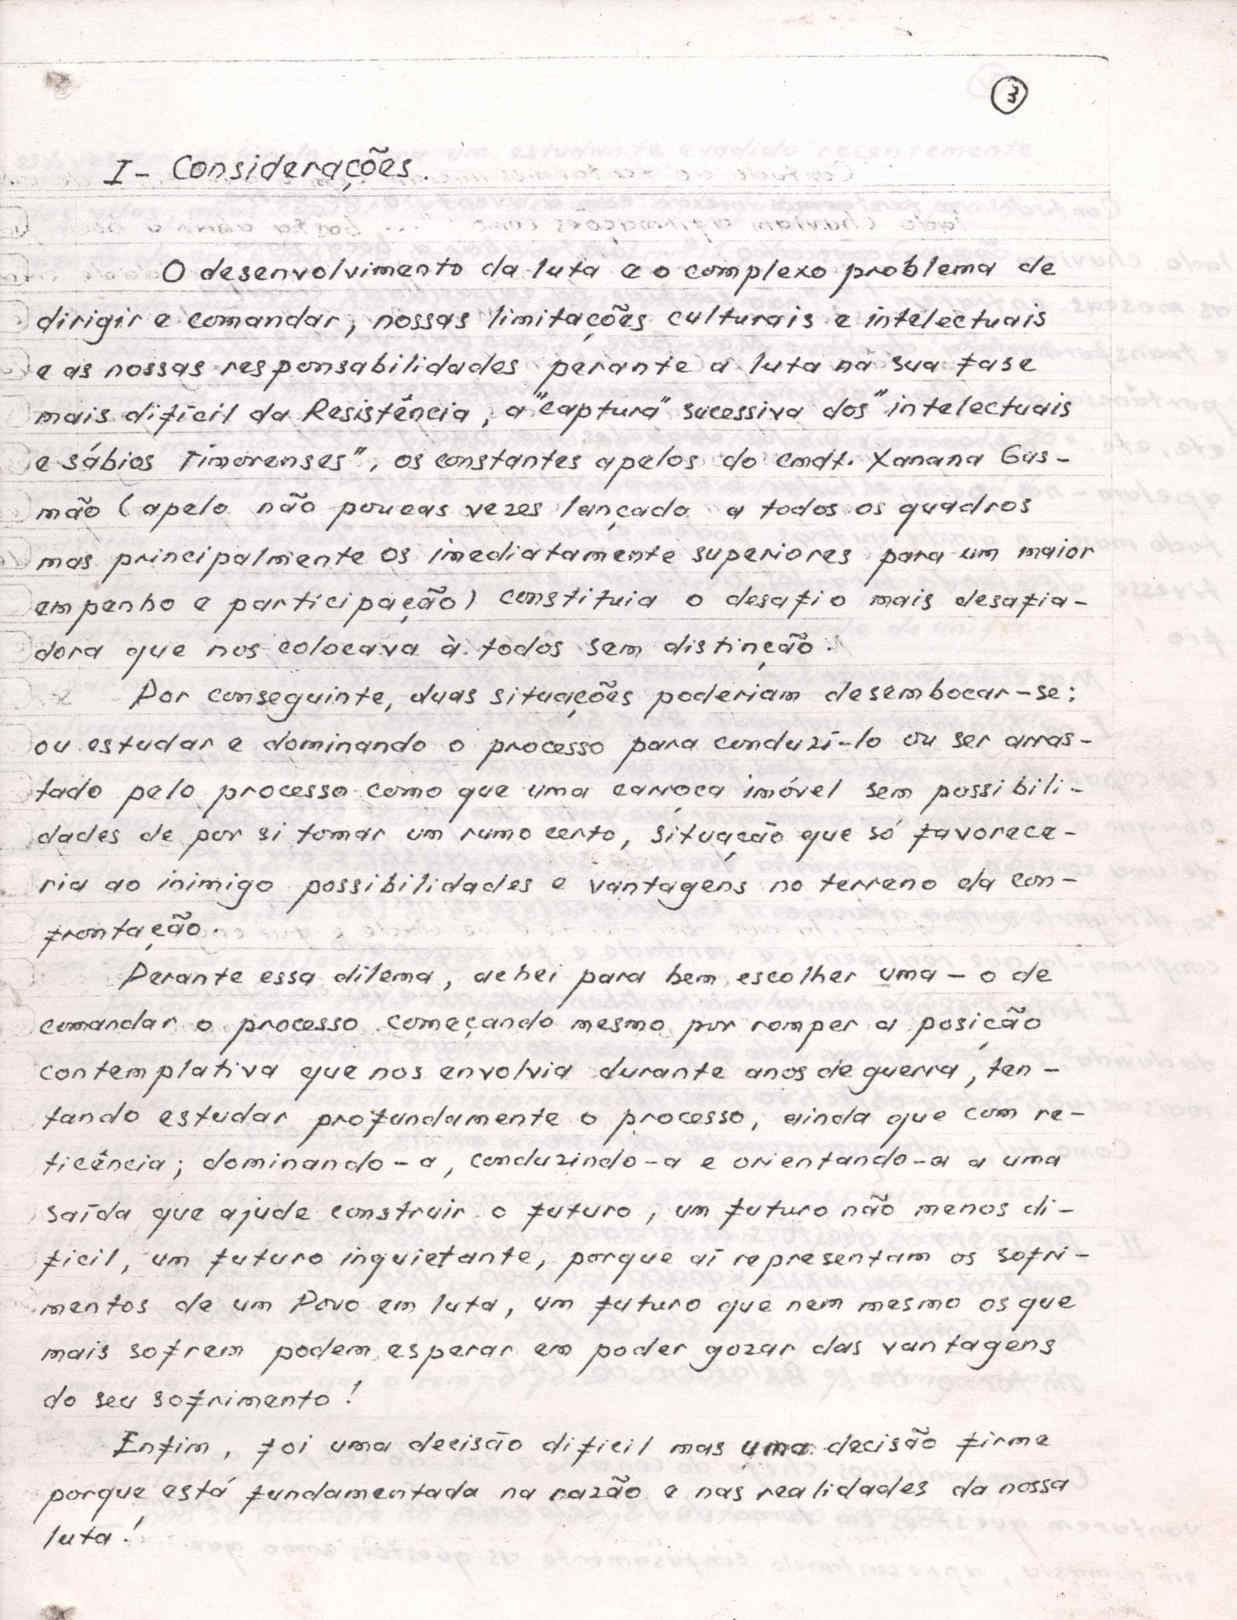 3
I - Considerações.
O desenvolvimento da luta e o complexo problema de
dirigir e comandar, nossas limitações culturais e intelectuais
e as nossas responsabilidades perante a luta na sua fase
mais difícil da Resistência, a "captura" sucessiva dos "intelectuais
e sábios Timorenses", os constantes apelos do Cmdt. Xanana Gus-
mão (apelo não poucas vezes lançado a todos os quadros
mas principalmente os imediatamente superiores para um maior
empenho e participação) constituia o desafio mais desafia-
dora que nos colocava à todos sem distinção.
Por conseguinte, duas situações poderiam desembocar-se:
ou estudar e dominando o processo para conduzí-lo ou ser arras-
tado pelo processo como que uma carroça imóvel sem possibili-
dades de por si tomar um rumo certo, situação que só favorece-
ria ao inimigo possibilidades e vantagens no terreno da con-
frontação.
Perante essa dilema, achei para bem escolher uma - o de
comandar o processo começando mesmo por romper a posição
contemplativa que nos envolvia durante anos de guerra, ten-
tando estudar profundamente o processo, ainda que com re-
ticência; dominando-a, conduzindo-a e orientando-a a uma
saída que ajude construir o futuro, um futuro não menos di-
ficil, um futuro inquietante, porque aí representam os sofri-
mentos de um Povo em luta, um futuro que nem mesmo os que
mais sofrem podem esperar em poder gozar das vantagens
do seu sofrimento!
Enfim, foi uma decisão dificil mas uma decisão firme
porque está fundamentada na razão e nas realidades da nossa
luta!